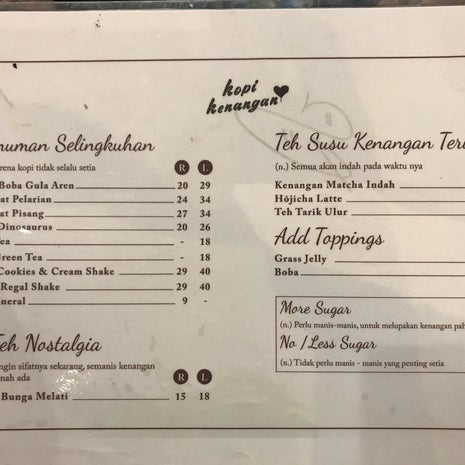 kopi
kenangan
numan Selingkuhan
rena kopi tidak selalu setia
R L
Boba Gula Aren 20 29
at Pelarian 24 34
at Pisang 27 34
Dinosaurus 20 26
ea - 18
Green Tea - 18
Cookies & Cream Shake 29 40
Regal Shake 29 40
neral 9 -
eh Nostalgia
ngin sifatnya sekarang, semanis kenangan
nah ada
R L
Bunga Melati 15 18
Teh Susu Kenangan Teri
(n.) Semua akan indah pada waktu nya
Kenangan Matcha Indah
Hōjicha Latte
Teh Tarik Ulur
Add Toppings
Grass Jelly
Boba
More Sugar
(n.) Perlu manis-manis, untuk melupakan kenangan pah
No / Less Sugar
(n.) Tidak perlu manis - manis yang penting setia